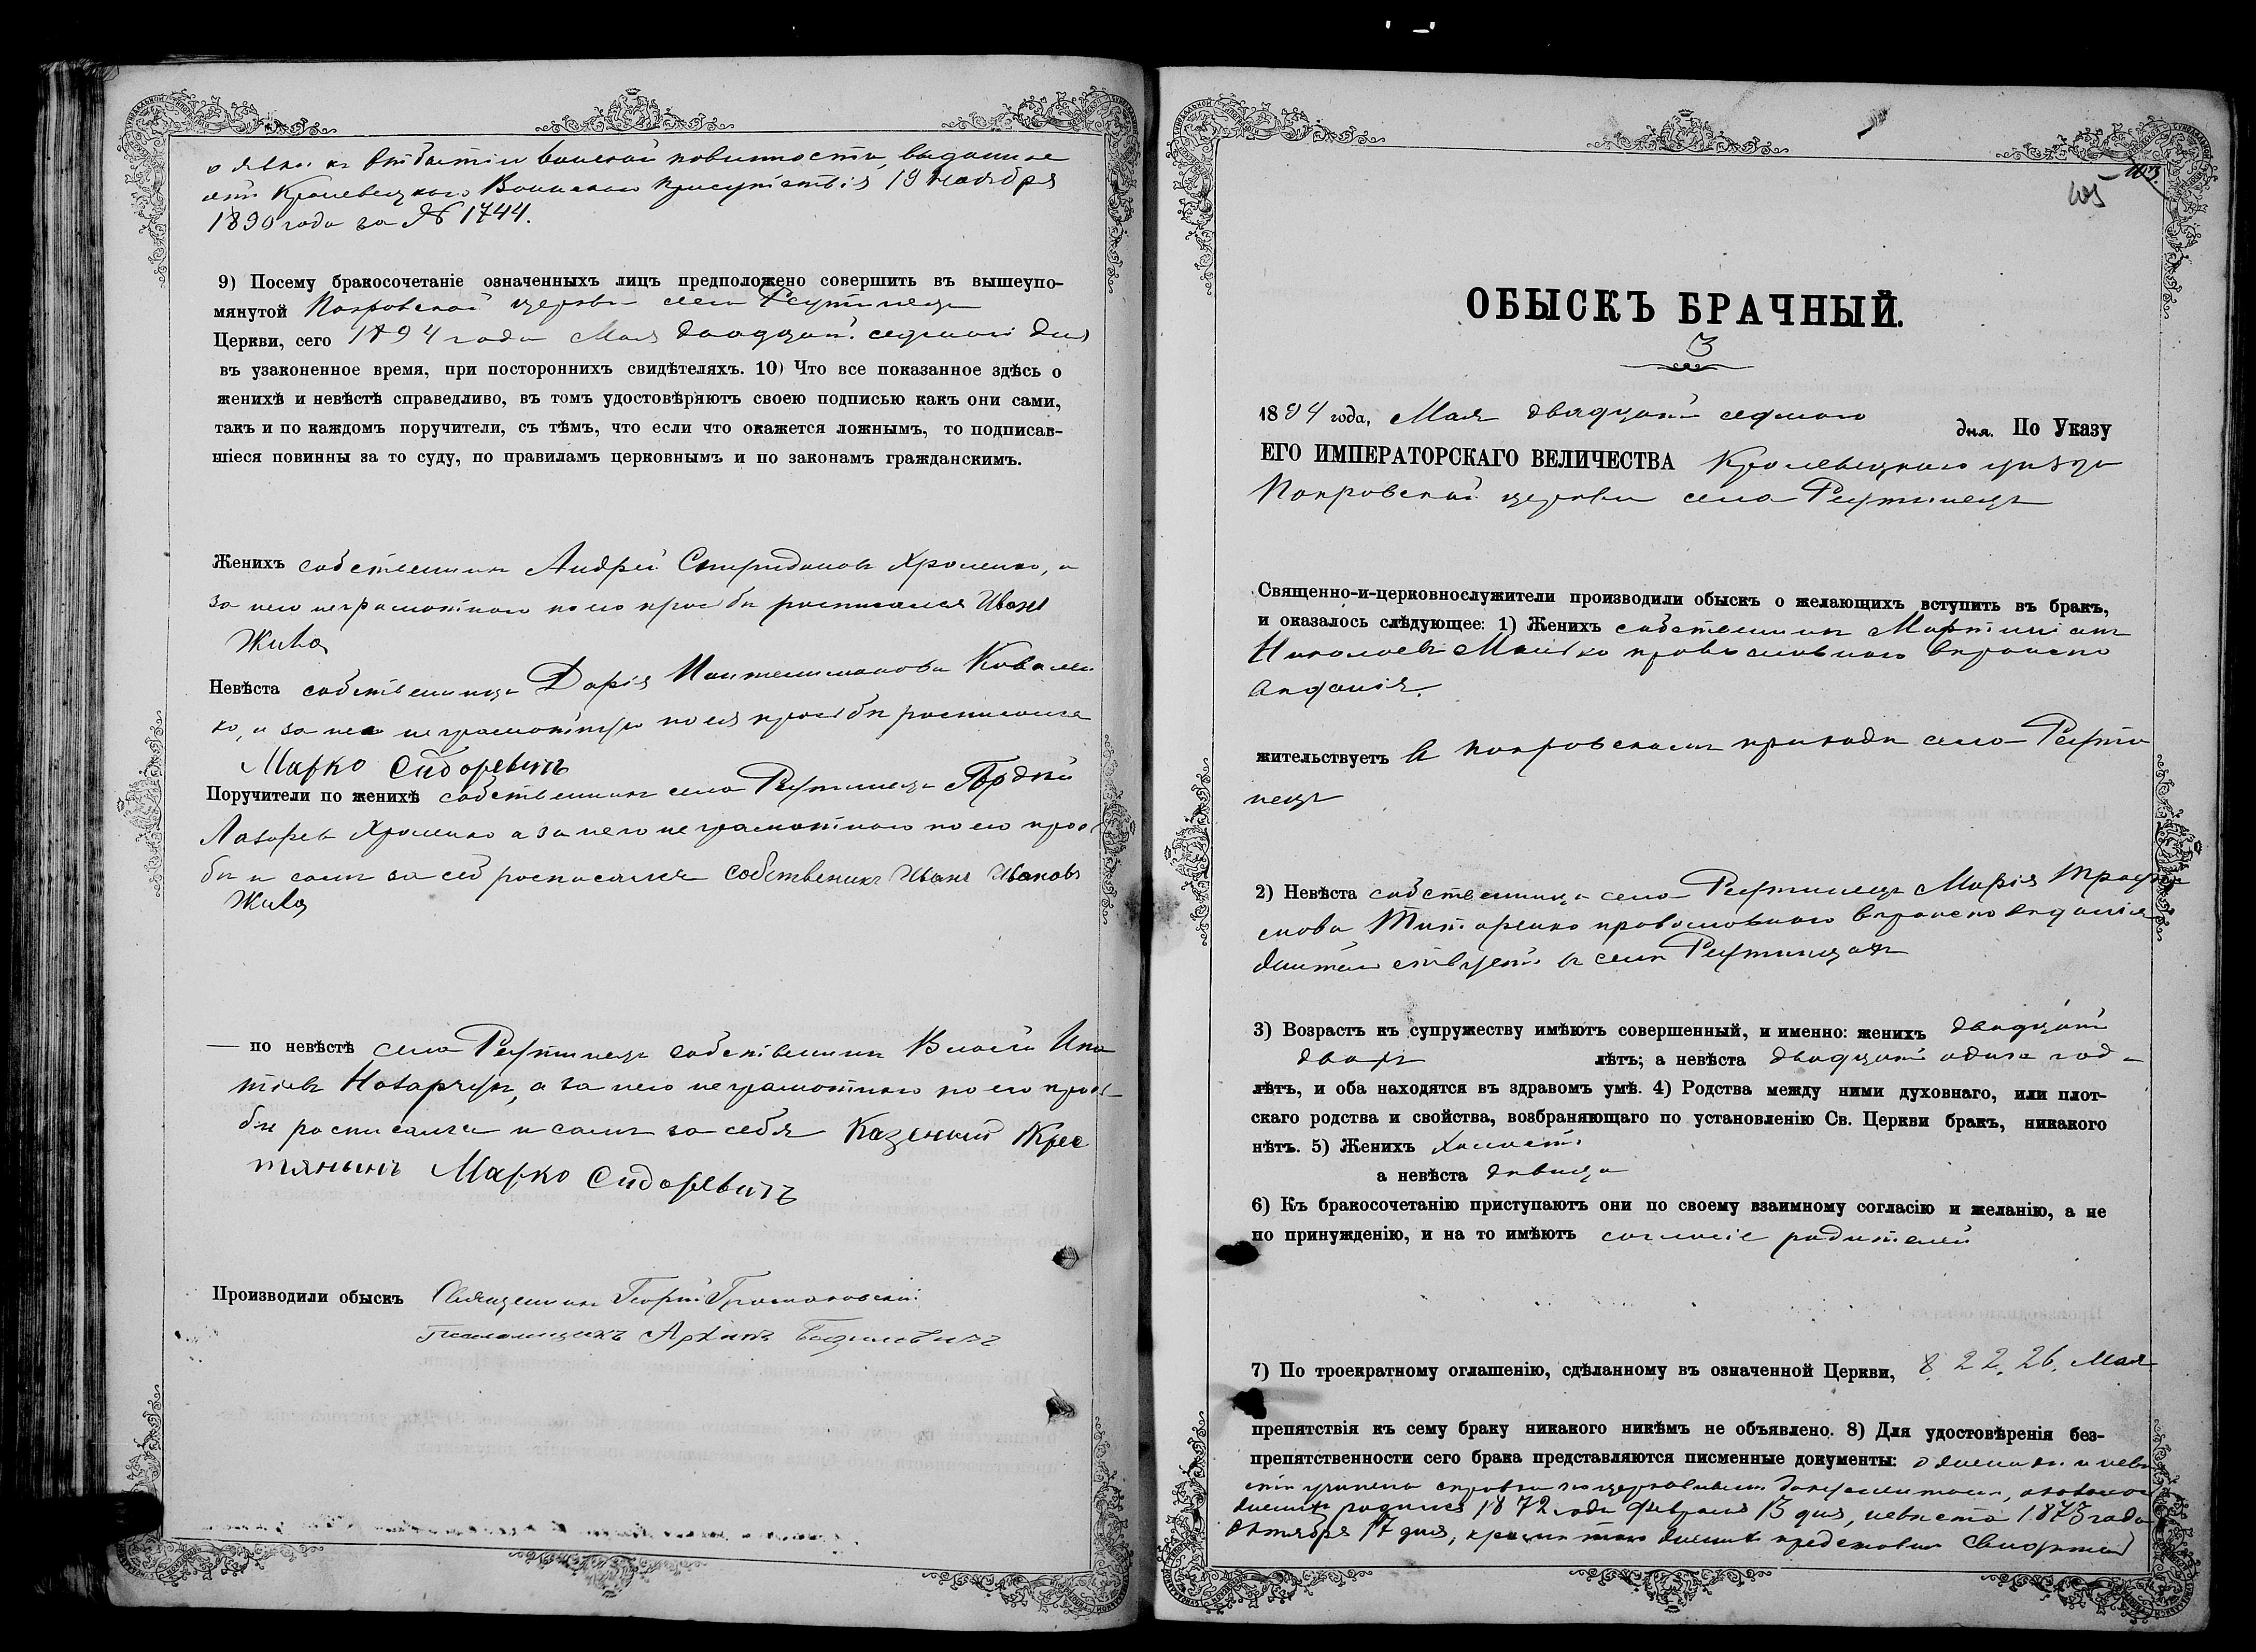 о явкѣ къ отбытію воинской повинности, выданное
отъ Кролевецкого Воинского присутствія 19 ноября
1890 года за № 1744.
9) Посему бракосочетаніе означенныхъ лицъ предположено совершить въ вышеупо-
мянутой Покровской церкви села Реутинецъ
Церкви, сего 1894 года Мая двадцать седьмого дня
въ узаконенное время, при постороннихъ свидѣтеляхъ. 10) Что все показанное здѣсь о
женихѣ и невѣстѣ справедливо, въ томъ удостовѣряютъ своею подписью какъ они сами,
такъ и по каждомъ поручители, съ тѣмъ, что если что окажется ложнымъ, то подписав-
шіеся повинны за то суду, по правиламъ церковнымъ и по законамъ гражданскимъ.
Женихъ собственникъ Андрей Спиридоновъ Хроменко, а
за него неграмотного по его прозьбѣ росписался Иванъ
Жила
Невѣста собственница Дарія Пантелимонова Ковален
ко, а за нее неграмотную по ея прозьбѣ росписался
Марко Сидоревичъ
Поручители по женихѣ собственникъ села Реутинецъ Гордѣй
Лазоревъ Хроменко а за него неграмотного по его проз
бѣ и самъ за себя росписался собственикъ Иванъ Ивановъ
Жила
— по невѣстѣ села Реутинецъ собственникъ Власій Ипа
тіевъ Назарчукъ, а за него неграмотного по его прозь-
бѣ росписался и самъ за себя Казеный Крес
тянинъ Марко Сидоревичъ
Производили обыскъ Священникъ Георгій
Псаломщикъ Архипъ
105
103.
ОБЫСКЪ БРАЧНЫЙ.
3
1894 года, Мая двадцать седьмого дня. По Указу
ЕГО ИМПЕРАТОРСКАГО ВЕЛИЧЕСТВА Кролевецкого уѣзда
Покровской церкви села Реутинецъ
Священно-и-церковнослужители производили обыскъ о желающихъ вступить въ бракъ,
и оказалось слѣдующее: 1) Женихъ собственникъ Мартиніанъ
Николаевъ православного вѣроиспо
вѣданія.
жительствуетъ въ Покровскомъ приходѣ села Реути
нецъ
2) Невѣста собственница села Реутинецъ Марія Трофи
мова Титаренко православного вѣроисповѣданія
жительствуетъ въ селѣ Реутинцахъ
3) Возрастъ къ супружеству имѣютъ совершенный, и именно: женихъ двадцать
двахъ лѣтъ; а невѣста двадцать одинъ годъ
лѣтъ, и оба находятся въ здравомъ умѣ. 4) Родства между ними духовнаго, или плот-
скаго родства и свойства, возбраняющаго по установленію Св. Церкви бракъ, никакого
нѣтъ. 5) Женихъ холостъ
а невѣста дѣвица
6) Къ бракосочетанію приступаютъ они по своему взаимному согласію и желанію, а не
по принужденію, и на то имѣютъ согласіе родителей
7) По троекратному оглашенію, сдѣланному въ означенной Церкви, 8, 22, 26. Мая
препятствія къ сему браку никакого никѣмъ не объявлено. 8) Для удостовѣренія без-
препятственности сего брака представляются писменные документы: о женихѣ и невѣ
стѣ учинена справка по церковнымъ документамъ, оказалось
женихъ родился 1872 года февраля 13 дня, невѣста 1873 года
Октября 17 дня, кромѣ того женихъ представилъ свидѣтел